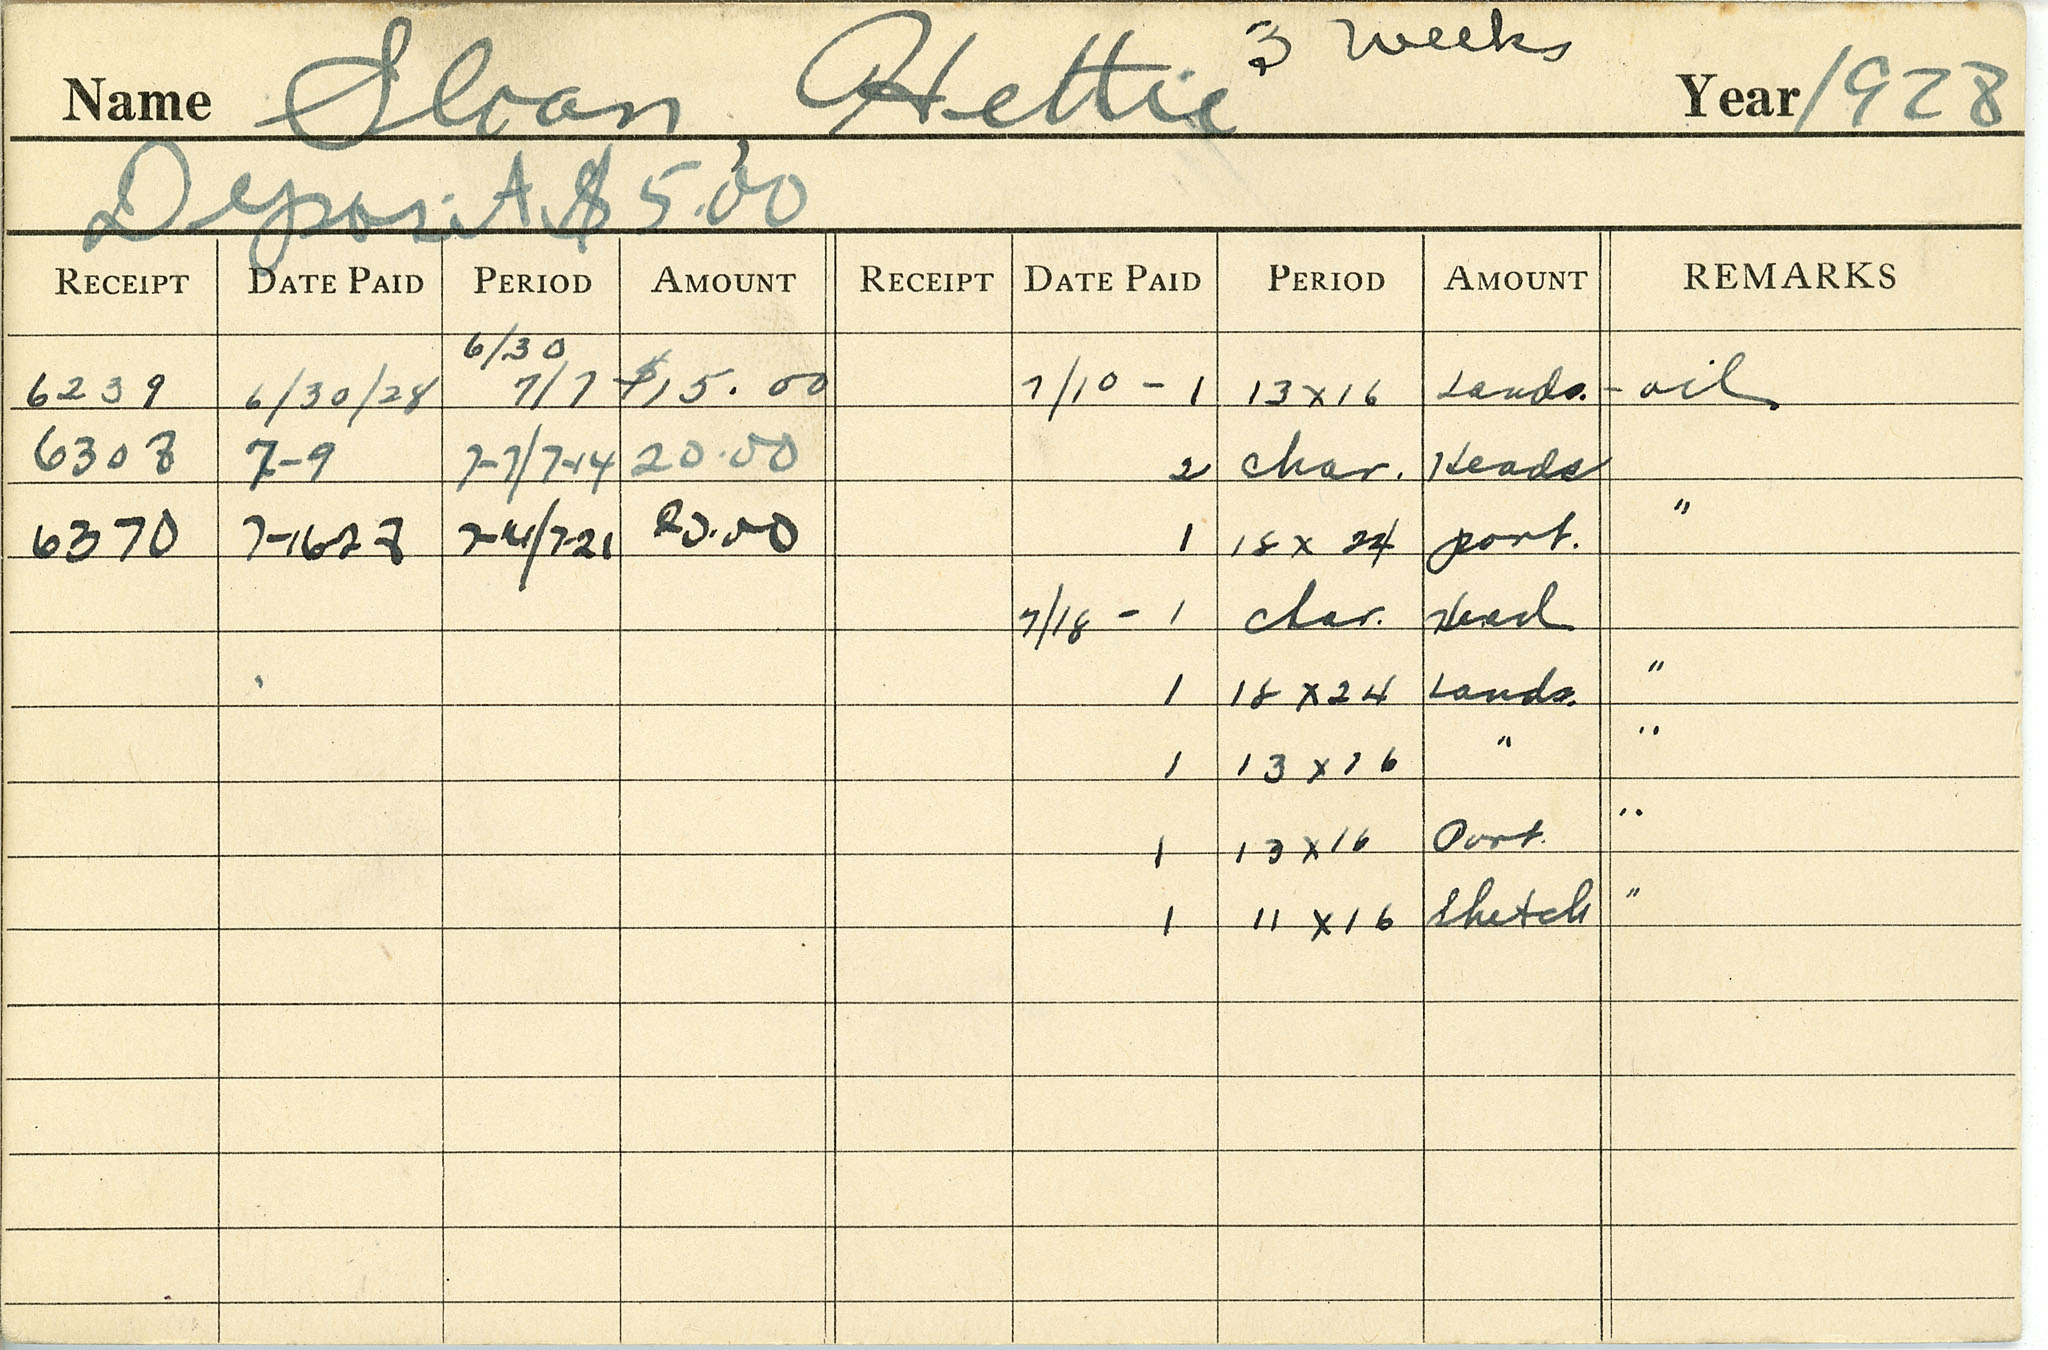 3 weeks
Name Sloan Hettie Year 1928
Deposit $5.00
RECEIPT DATE PAID PERIOD AMOUNT RECEIPT DATE PAID PERIOD AMOUNT REMARKS
6/30
6239 6/30/28 7/7 $15.00 7/10 - 1 13 x 16 Lands. - oil
6308 7-9 7-7/7-14 20.00 2 char. Heads
6370 7-1628 7-14/7-21 20.00 1 18 x 24 port. "
7/18 - 1 char. Head
1 18 x 24 Lands. "
1 13 x 16 " "
1 13 x 16 Port. "
1 11 x 16 Sketch "